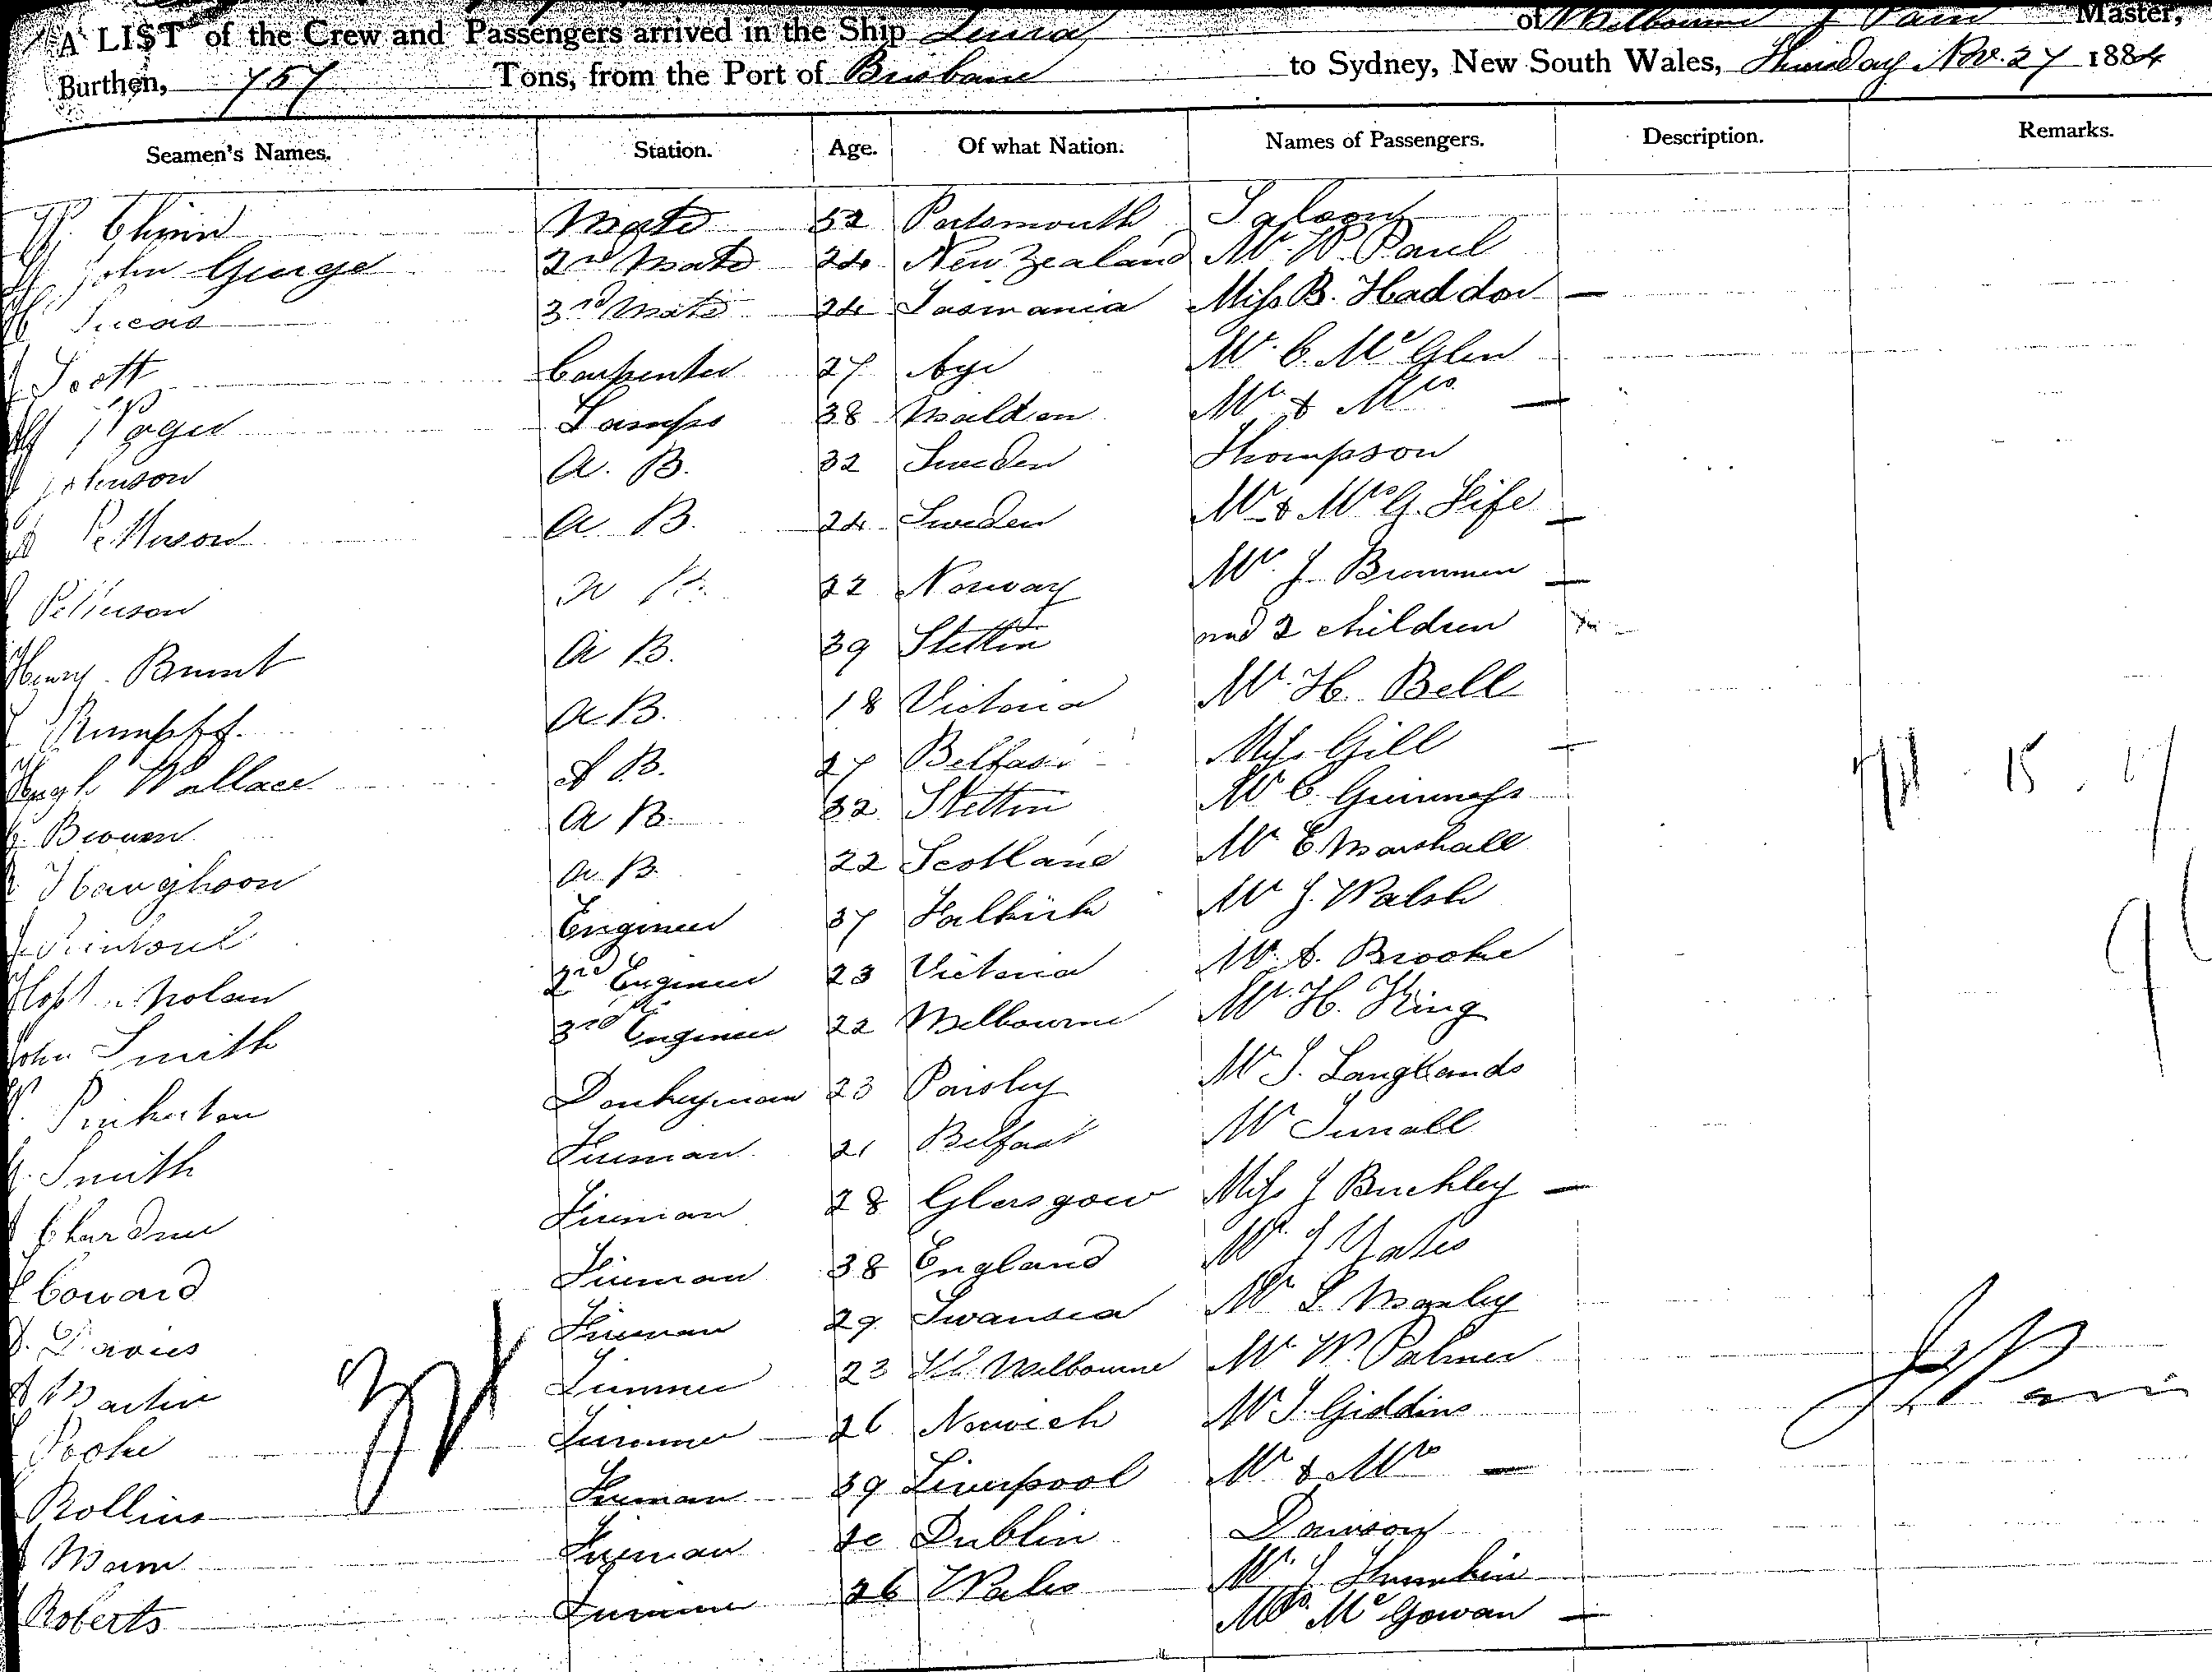 A LIST of the Crew and Passengers arrived in the Ship Leura of Melbourne J Pain Master,
Burthen, 757 Tons, from the Port of Brisbane to Sydney, New South Wales, Thursday Nov. 27 1884
Seamen's Names. Station. Age. Of what Nation. Names of Passengers. Description. Remarks.
Chinn Mate 52 Portsmouth Saloon
John George 2nd Mate 24 New Zealand Mr. W. Paul
Lucas 3rd Mate 24 Tasmania Miss B. Haddon —
Scott Carpenter 27 Ayr Mr. C. McGlen
Roger Lamps 38 Maldon Mr & Mrs —
Johnson A. B. 32 Sweden Thompson
Petterson A B. 24 Sweden Mr & Mrs G. Fife —
Petterson 22 Norway Mrs J. Brommen —
Henry Brunt A B. 39 Stettin and 2 children
Rumpff. A B. 18 Victoria Mr. H. Bell
Hugh Wallace A B. 27 Belfast Miss Gill —
Brown A B 32 Stettin Mr C Guinness
A B 22 Scotland Mr E Marshall
Rintoul Engineer 37 Falkirk Mr J. Walsh
Nolan 2nd Engineer 23 Victoria Mr. A. Brooke
John Smith 3rd Engineer 22 Melbourne Mr H. King
Pinkerton Donkeyman 23 Paisley Mr J. Langlands
Smith Fireman 21 Belfast Mr
Fireman 28 Glasgow Miss J Buckley —
Coward Fireman 38 England Mr J Yates
Davies Fireman 29 Swansea Mr S. Manley
Martin Trimmer 23 Melbourne Mr W. Palmer
Poole Trimmer 26 Norwich Mr J. Giddins
Rollins Fireman 39 Liverpool Mr & Mrs —
Mann Fireman Dublin Dawson
Roberts Trimmer 26 Wales Mr. J
Mrs McGowan —
J Pain